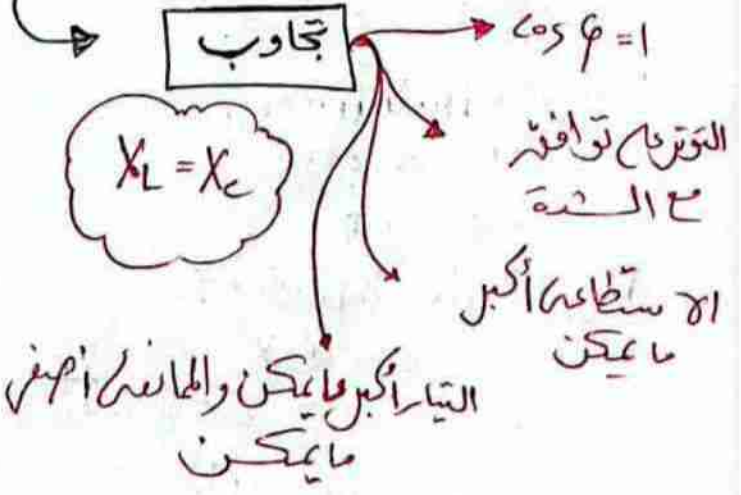 تجاوب
cos φ = 1
X_L = X_c
التوتر على توافق
مع الشدة
الاستطاعة أكبر
ما يمكن
التيار أكبر ما يمكن والممانعة أصغر
ما يمكن